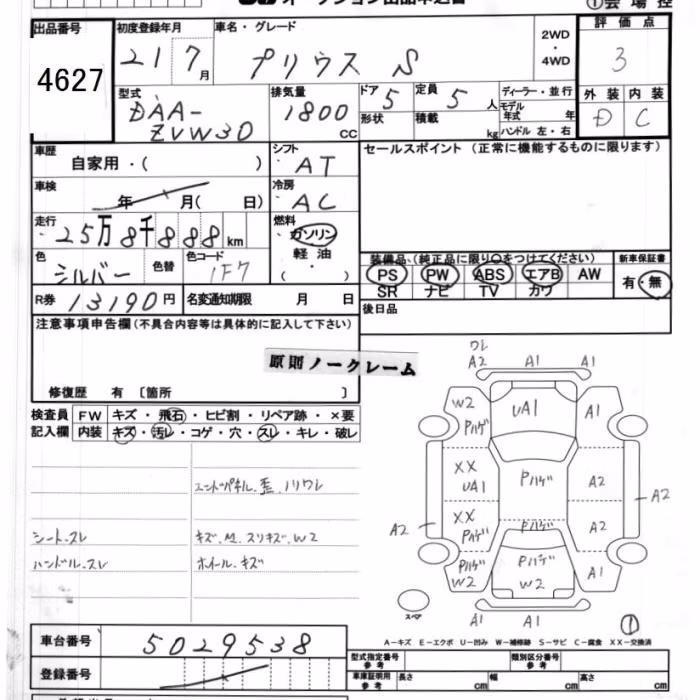 オークション出品申込書
①会場控
出品番号
4627
初度登録年月
21 7月
車名・グレード
プリウス S
2WD
・
4WD
評価点
3
外装 内装
D C
型式
DAA-
ZVW30
排気量
1800
CC
ドア 5
形状
定員 5 人
積載 kg
ディーラー・並行
モデル
年式 年
ハンドル 左・右
車歴
自家用・( )
シフト
AT
セールスポイント(正常に機能するものに限ります)
車検
年 月( 日)
冷房
AC
走行
25万8千888km
燃料
・ガソリン
軽油
・( )
色
シルバー
色替
色コード
1F7
装備品(純正品に限り○をつけてください)
PS PW ABS エアB AW
SR ナビ TV カワ
新車保証書
有・無
R券 13190円
名変通知期限 月 日
後日品
注意事項申告欄(不具合内容等は具体的に記入して下さい)
原則ノークレーム
修復歴 有 〔箇所 〕
検査員
記入欄
FW キズ・飛石・ヒビ割・リペア跡・×要
内装 キズ・汚レ・コゲ・穴・スレ・キレ・破レ
エンドパネル.歪.ノリワレ
シート.スレ
キズ.M.スリキズ.W2
ハンドル.スレ
ホイール.キズ
ワレ
A2 A1 A1
W2 Pハゲ UA1 A1
XX UA1 Pハゲ A2
A2 XX Pハゲ Pハゲ A2 A2
Pハゲ W2 Pハゲ W2 A1
A1 A1
スペア
①
A-キズ E-エクボ U-凹み W-補修跡 S-サビ C-腐食 XX-交換済
車台番号
5029538
登録番号
型式指定番号
参考
類別区分番号
参考
車庫証明用
参考
長さ cm
幅 cm
高さ cm